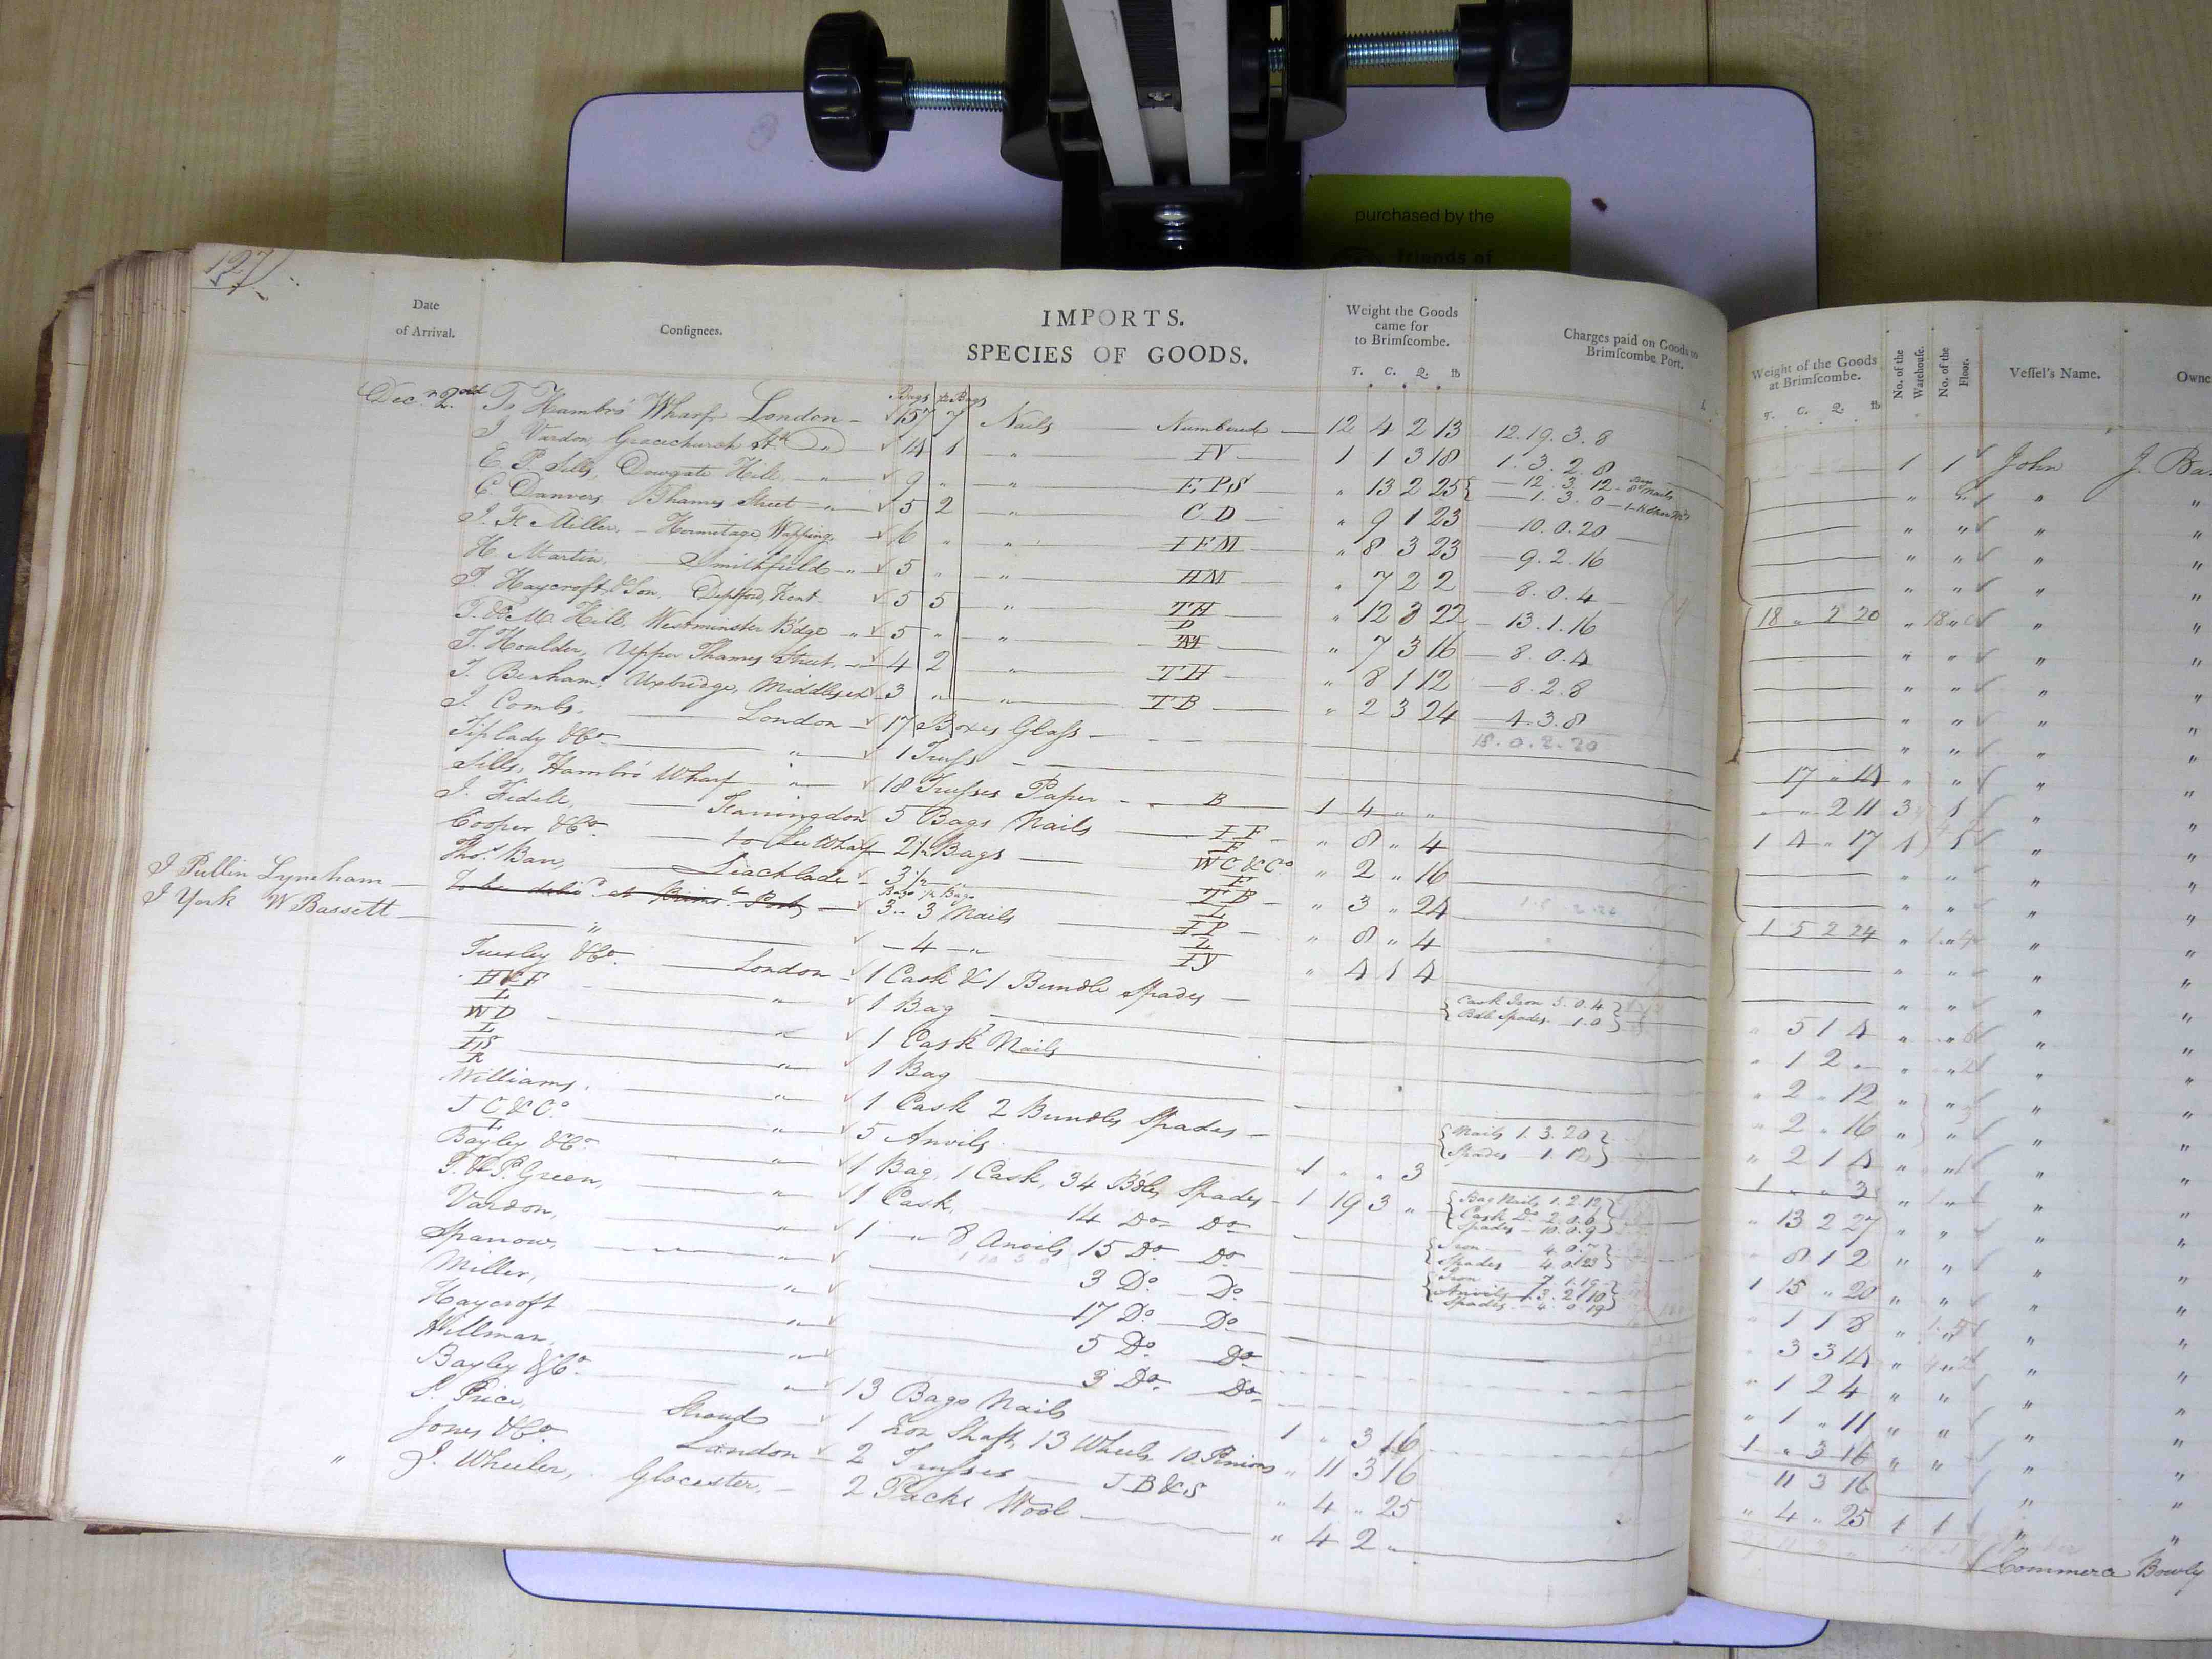 purchased by the
Friends of
127
Date
of Arrival.
Conſignees.
IMPORTS.
SPECIES OF GOODS.
Weight the Goods
came for
to Brimſcombe.
T. C. Q. lb
Charges paid on Goods to
Brimſcombe Port.
Weight of the Goods
at Brimſcombe.
T. C. Q. lb
No. of the
Warehouſe.
No. of the
Floor.
Veſſel's Name.
Owne
Bags ½ Bags
To Hambro' Wharf London 157 7 Nails Numbered 12 4 2 13 12.19.3.8 1 1 John J. Ba
J Vardon, Gracechurch St " 14 1 " IV 1 1 3 18 1.3.2.8
E. P. Sills, Dowgate Hill " 9 " " EPS " 13 2 25 12.3.12 Bags Nails
1.3.0
C. Danvers, Thames Street " 5 2 " CD " 9 1 23 10.0.20
J. F. Miller, Hermitage, Wapping 6 " " IFM " 8 3 23 9.2.16
H. Martin, Smithfield " 5 " " HM " 7 2 2 8.0.4
T Haycroft & Son, Deptford, Kent 5 5 " TH D " 12 3 22 13.1.16 18 " 2 20
T. & M. Hill, Westminster B'dge " 5 " " " 7 3 16 8.0.4
T. Houlder, Upper Thames Street 4 2 " TH " 8 1 12 8.2.8
T. Benham, Uxbridge, Middlesex 3 " " TB " 2 3 24 4.3.8
18.0.2.20
J. Combs, London 17 Boxes Glaſs 17 " 14
Tiplady & Co. " 1 Truſs " " 2 11 3 1
Sills, Hambro' Wharf " 18 Truſses Paper B 1 4 " " 1 4 " 17
J. Fidell, Farringdon 5 Bags Nails IF F " 8 " 4
Cooper & Co. to Lee Wharf 2 ½ Bags WC&Co " 2 " 16
Thos. Barr, Leachlade 3 ½ " TB L " 3 " 24 1 5 2 24
J Pullin Lyneham To be deliv'd at Brims. Port Bags ½ Bags
3 " 3 Nails IP L " 8 " 4
J York W Bassett " 4 " IY " 4 1 4
Tuesley & Co. London 1 Cask & 1 Bundle Spades Cask Iron 5.0.4
Bdl Spades 1.0 " 5 1 4
H&F L " 1 Bag " 1 2 "
WD L " 1 Cask Nails " 2 " 12
R " 1 Bag " 2 " 16
Williams, " 1 Cask 2 Bundles Spades Nails 1.3.20
Spades 1.12 " 2 1 4
JC&Co. L " 5 Anvils 1 " " 3 1 " " 3
Bayley & Co. " 1 Bag, 1 Cask, 34 Bdles Spades 1 19 3 " Bag Nails 1.2.12
Cask Do 2.0.0
Spades 10.0.9 " 13 2 27
T. & P. Green, " 1 Cask, 14 Do Do Iron 4.0.7
Spades 4.0.23 " 8 1 2
Vardon, " 1 " 8 Anvils 15 Do Do Iron 7.1.19
Anvils 1.3.2.10
Spades 4.0.19 1 15 " 20
Sparrow, " 3 Do Do " 1 1 8
Miller, " 17 Do Do " 3 3 14
Haycroft " 5 Do Do " 1 2 4
Hillman, " 3 Do Do " 1 " 11
Bayley & Co. " 13 Bags Nails 1 " 3 16 1 " 3 16
S. Price, Stroud 1 Iron Shaft, 13 Wheels, 10 Pinions " 11 3 16 11 3 16
Jones & Co. London 2 Truſses JB&S " 4 " 25 " 4 " 25 1 1
" J. Wheeler, Glocester, 2 Packs Wool " 4 2 " Commerce Bowly